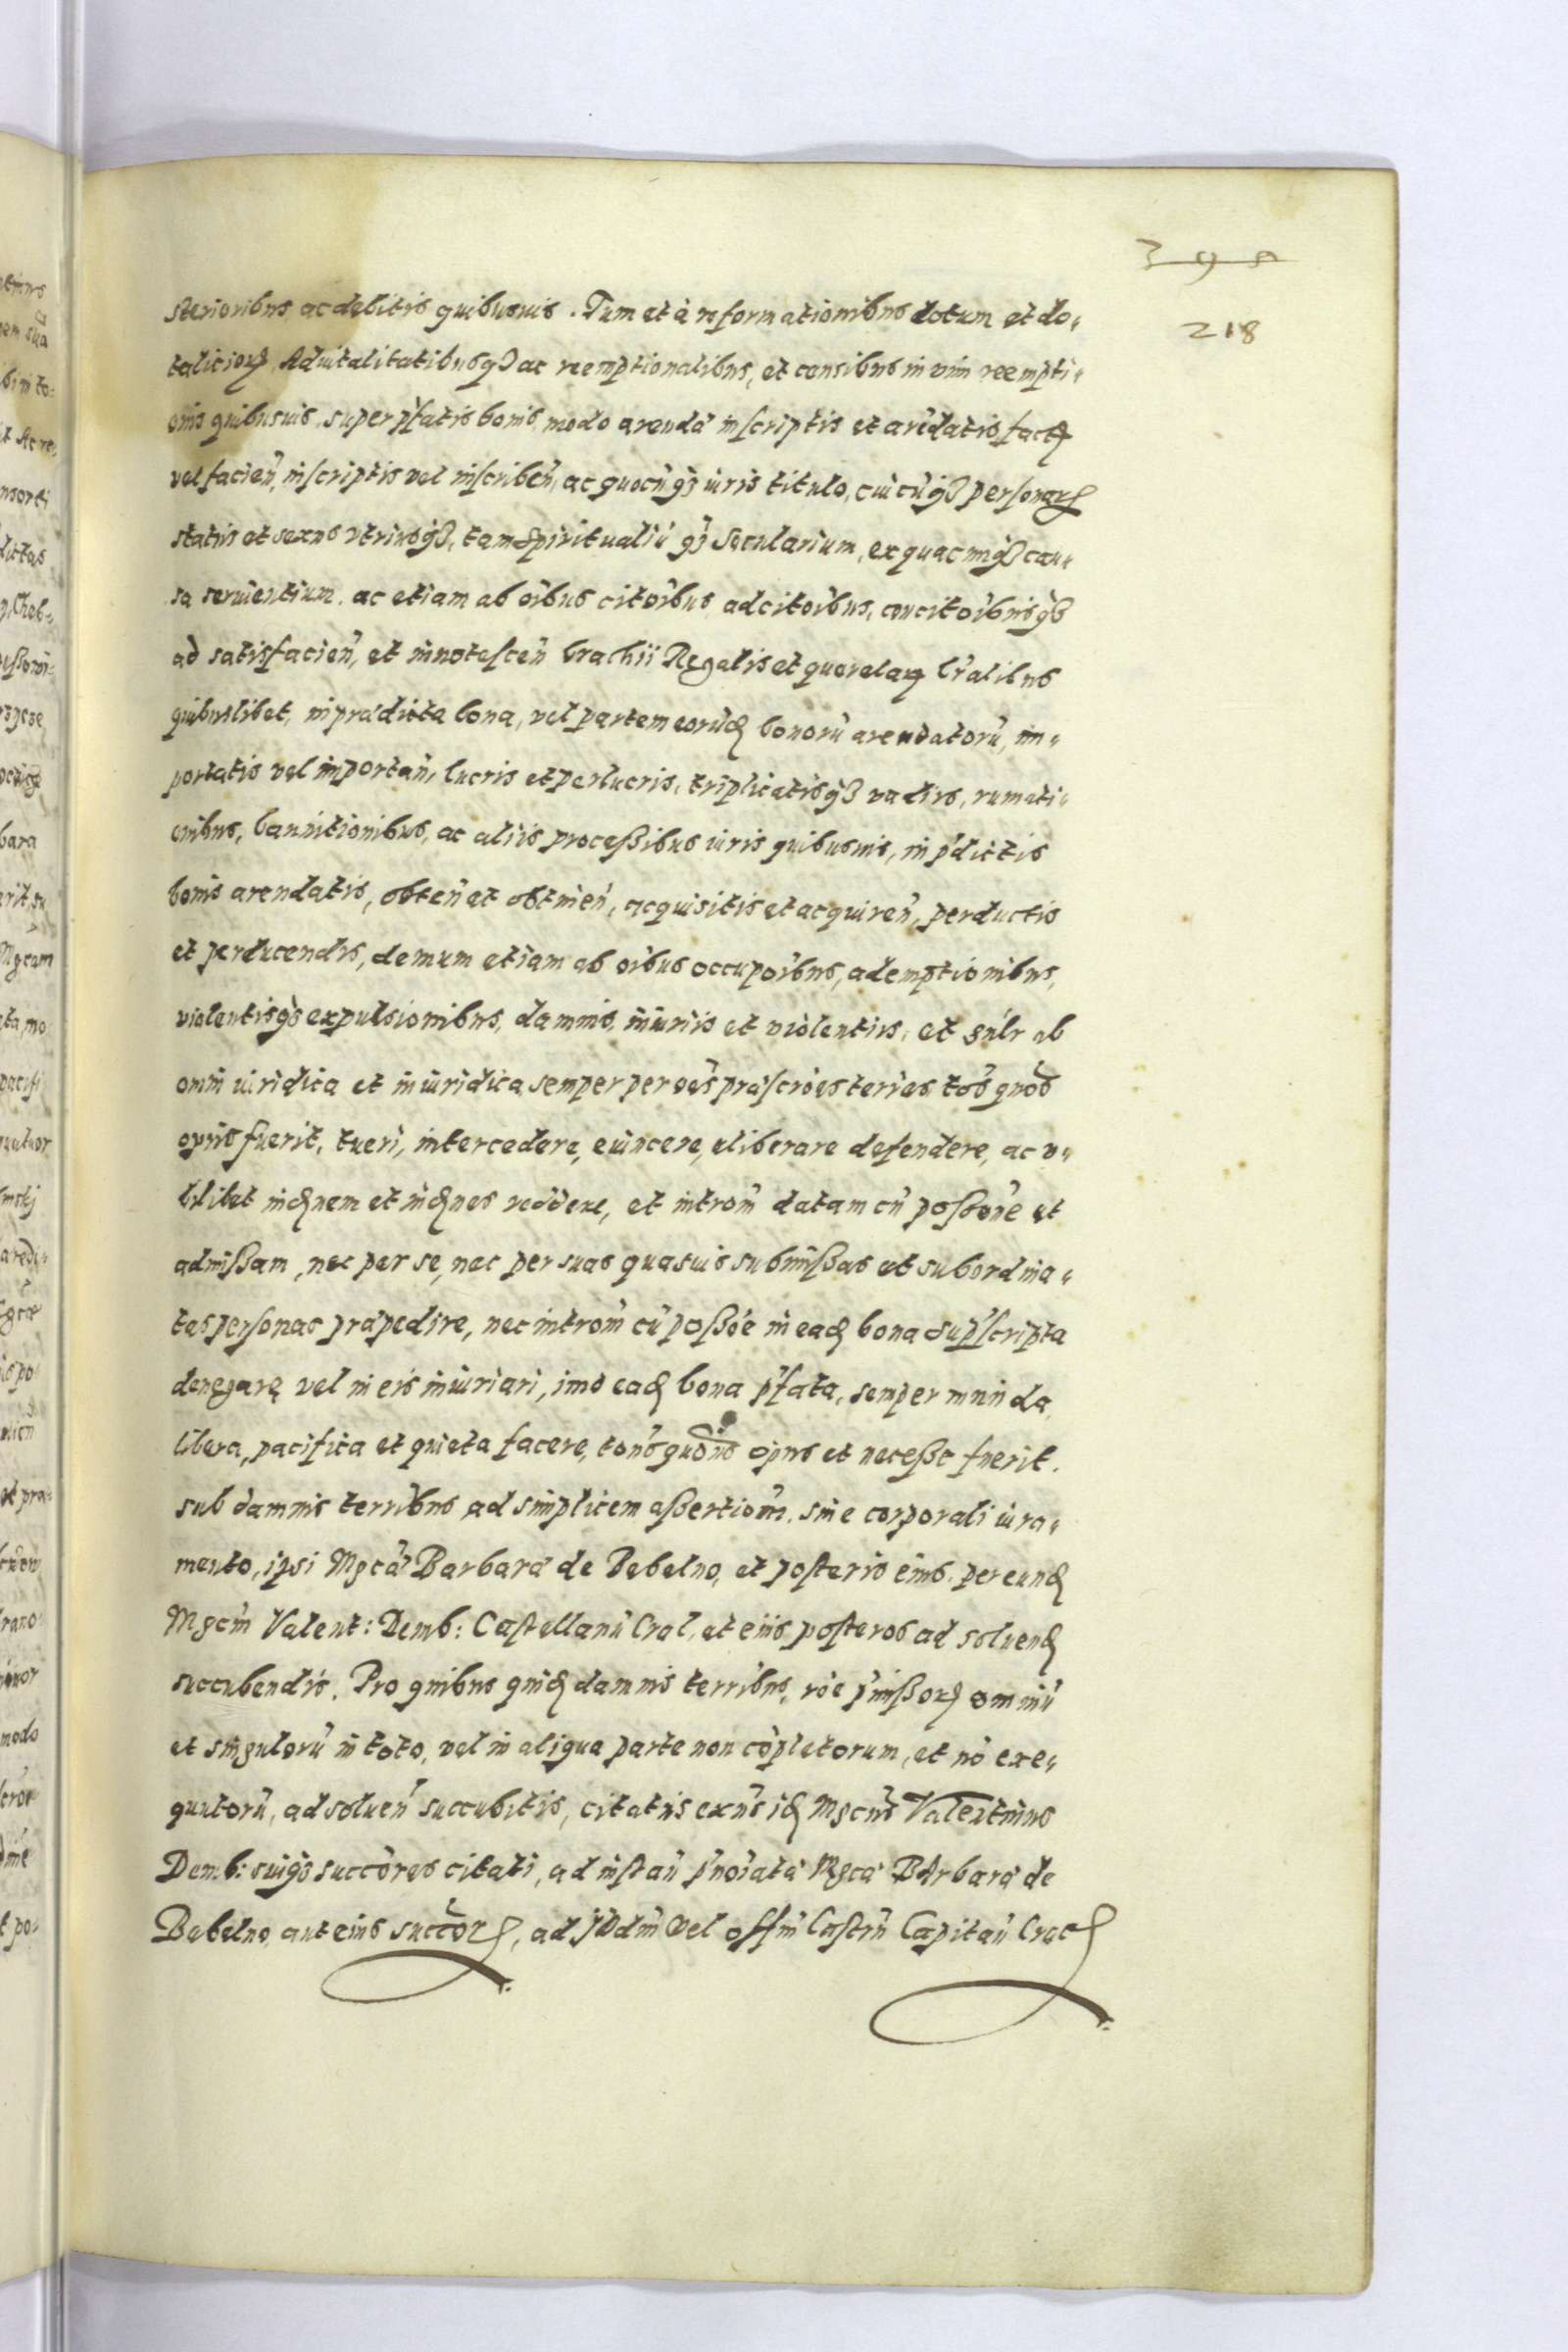 395
218
sterioribus ac debitis quibusuis. Tum et à reformationibus dotum et do-
taliciorꝝ Aduitalitatibusqꝫ ac reemptionalibus, et censibus in vim reempti-
onis quibusuis, super pͥfatis bonis modo arendae inscriptis et arēdatis fact
vel facień, inscriptis vel inscribeń, ac quocūqꝫ iuris titulo, cuicūqꝫ personarꝝ
status et sexus vtriusqꝫ, tam Spiritualiū qꝫ Secularium, ex quacunqꝫ cau-
sa seruientium. ac etiam ab oībus citoībus adcitoībus, concitoībusqꝫ
ad satisfacień, et innotesceń brachii Regalis et querelarꝝ lr̃alibus
quibuslibet, in praedicta bona, vel partem eorūd bonorū arendatorū, im-
portatis vel importań, lucris et perlucris, triplicatisqꝫ vadiis, rumati-
onibus, bannitionibus, ac aliis processibus iuris quibusuis, in p̃dictis
bonis arendatis, obteń et obtineń, acquisitis et acquireń, perductis
et perducendis, demum etiam ab oībus occupoībus, ademptionibus,
violentisqꝫ expulsionibus, damnis, iniuriis et violentiis, et gnlr ab
omni iuridica et iniuridica semper per oēs praescrōes terr̃es toś quoś
opus fuerit, tueri, intercedere, euincere, eliberare defendere, ac v-
bilibet indnem et indnes reddere, et introm̃ datam cū possōne et
admissam, nec per se, nec per suas quasuis submissas et subordina-
tas personas praepedire, nec introm̃ cū possōe in ead bona sup̃scripta
denegare vel in eis iniuriari, imò ead bona p̃fata, semper munda
libera, pacifica et quieta facere, toń̃s quoń̃s opus et necesse fuerit.
sub damnis terrībus ad simplicem assertiom̃. sine corporali iura-
mento, ipsi Mgcae Barbarae de Bebelno, et posteris eius. per eund
Mgcm̃ Valent: Demb: Castellanū Cral, et eiis posteros ad soluend
succubendis. Pro quibus quid damnis terrībus, rōe p̃missorꝝ omniū
et singulorū in toto, vel in aliqua parte non cōpletorum, et nō exe-
quutorū, ad solueń succubitis, citatus exńs id Mgcńs Valentinus
Demb: suiqꝫ succōres citati, ad instań p̃noīatae Mgcae Barbarae de
Bebelno aut eius succōrꝝ, ad Judm̃ vel offm̃ Castrń Capitań Crac